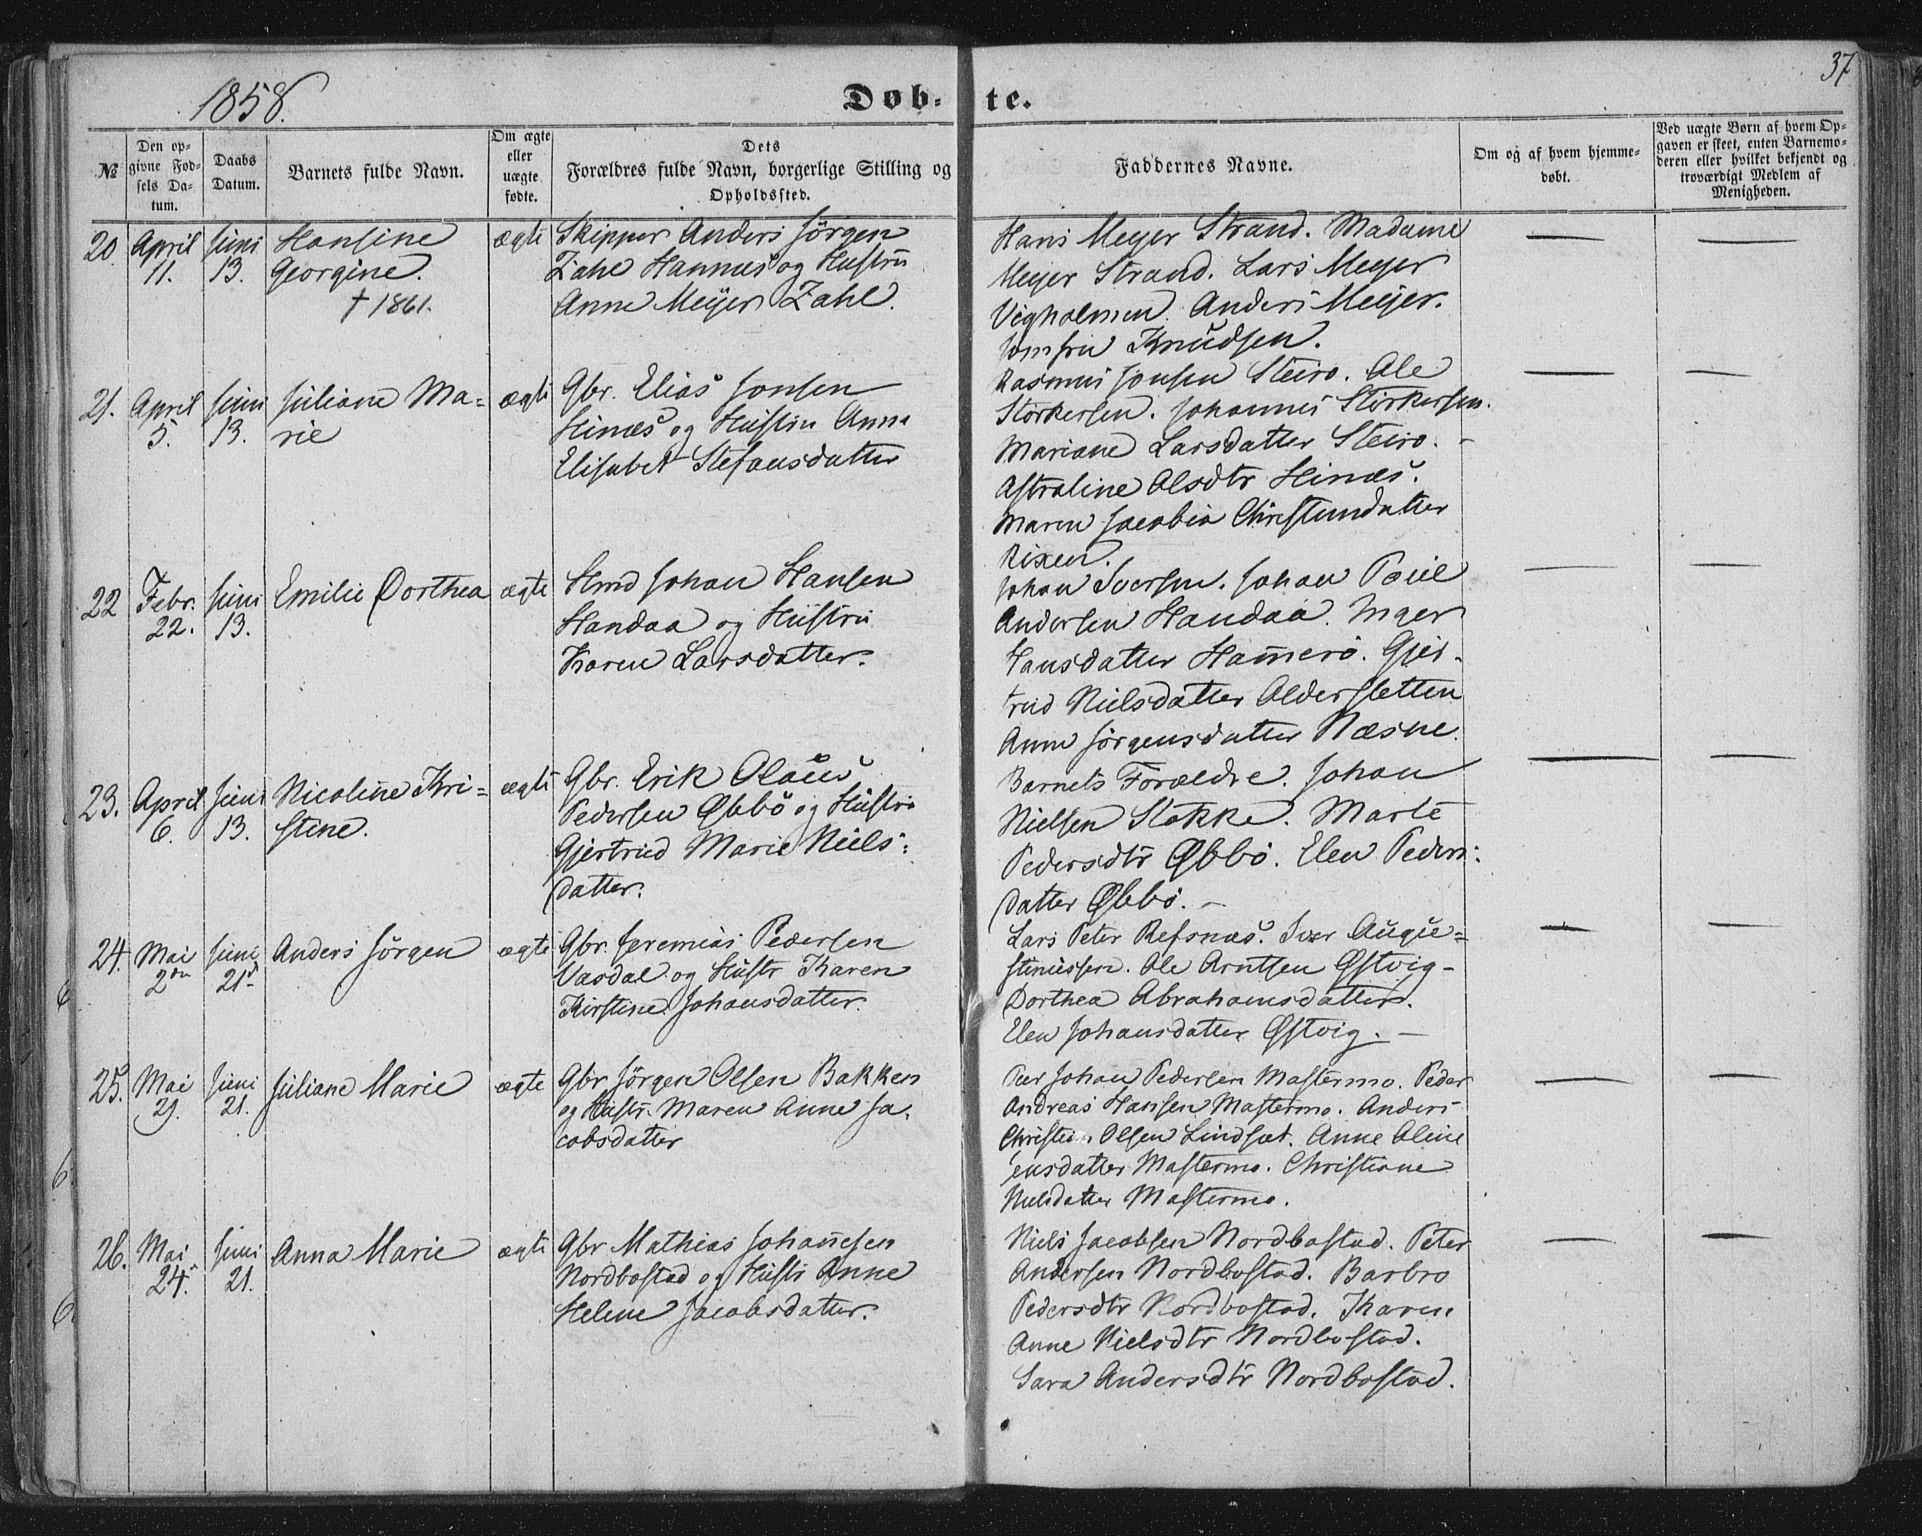 1858.
Døb-
te.
37
№
Den op-
givne Fød-
sels Da-
tum.
Daabs
Datum.
Barnets fulde Navn.
Om ægte
eller
uægte
fødte.
Dets
Forældres fulde Navn, borgerlige Stilling og
Opholdssted.
Faddernes Navne.
Om og af hvem hjemme-
døbt.
Ved uægte Børn af hvem Op-
gaven er skeet, enten Barnemo-
deren eller hvilket bekjendt og
troværdigt Medlem af
Menigheden.
20. April 11. Juni 13. Hansine
Georgine.
† 1861.
ægte
Skipper Anders Jørgen
Zahl Hannes og Hustru
Anne Meyer Zahl.
Hans Meyer Strand. Madame
Meyer Strand. Lars Meyer
Vigholmen. Anders Meyer.
Jomfru Knudsen.
21. April 5. Juni 13. Juliane Ma-
rie
ægte
Gbr. Elias Jonsen
Hinæs og Hustru Anna
Elisabet Stefansdatter
Rasmus Jonsen Steiro. Ole
Størkersen. Johannes Størkersen.
Mariane Larsdatter Steiro. -
Astraline Olsdtr Hinæs.
Maren Jacobia Christensdatter
Rixen.
22 Febr. 22. Juni 13. Emilie Dorthea
ægte
Hmd Johan Hansen
Handaa og Hustru
Karen Larsdatter.
Johan Iversen. Johan Poul
Andersen Handaa. Inger
Hansdatter Hamerø. Gjer-
trud Nielsdatter Aldersletten
Anne Jørgensdatter Næsne.
23. April 6. Juni 13. Nicoline Kri-
stine.
ægte
Gbr. Erik Olaus
Pedersen Øbbø og Hustru
Gjertrud Marie Niels-
datter.
Barnets Forældre. Johan
Nielsen Stokke. Marte
Pedersdtr Øbbø. Elen Peders-
datter Øbbø. -
24. Mai 2den Juni 21de Anders Jørgen
ægte
Gbr. Jeremias Pedersen
Vasdal og Hustr Karen
Kirstine Johansdatter.
Lars Peter Refsnæs. Iver Augu-
stinussen. Ole Arntsen Østvig-
Dorthea Abrahamsdatter.
Elen Johansdatter Østvig. -
25. Mai 29. Juni 21. Juliane Marie
ægte
Gbr Jørgen Olsen Bakken
og Hustr. Maren Anne Ja-
cobsdatter
Peer Johan Pedersen Mastermo. Peder
Andreas Hansen Mastermo. Anders
Olsen Lindsæt. Anne Oline
ensdatter Mastermo. Christiane
Nielsdatter Mastermo.
26. Mai 24. Juni 21. Anna Marie
ægte
Gbr Mathias Johannesen
Nordbostad og Hustr Anne
Helene Jacobsdatter.
Niels Jacobsen Nordbostad. Peter
Andersen Nordbostad. Barbro
Pedersdtr Nordbostad. Karen
Anne Nielsdtr Nordbostad.
Sara Andersdtr Nordbostad.